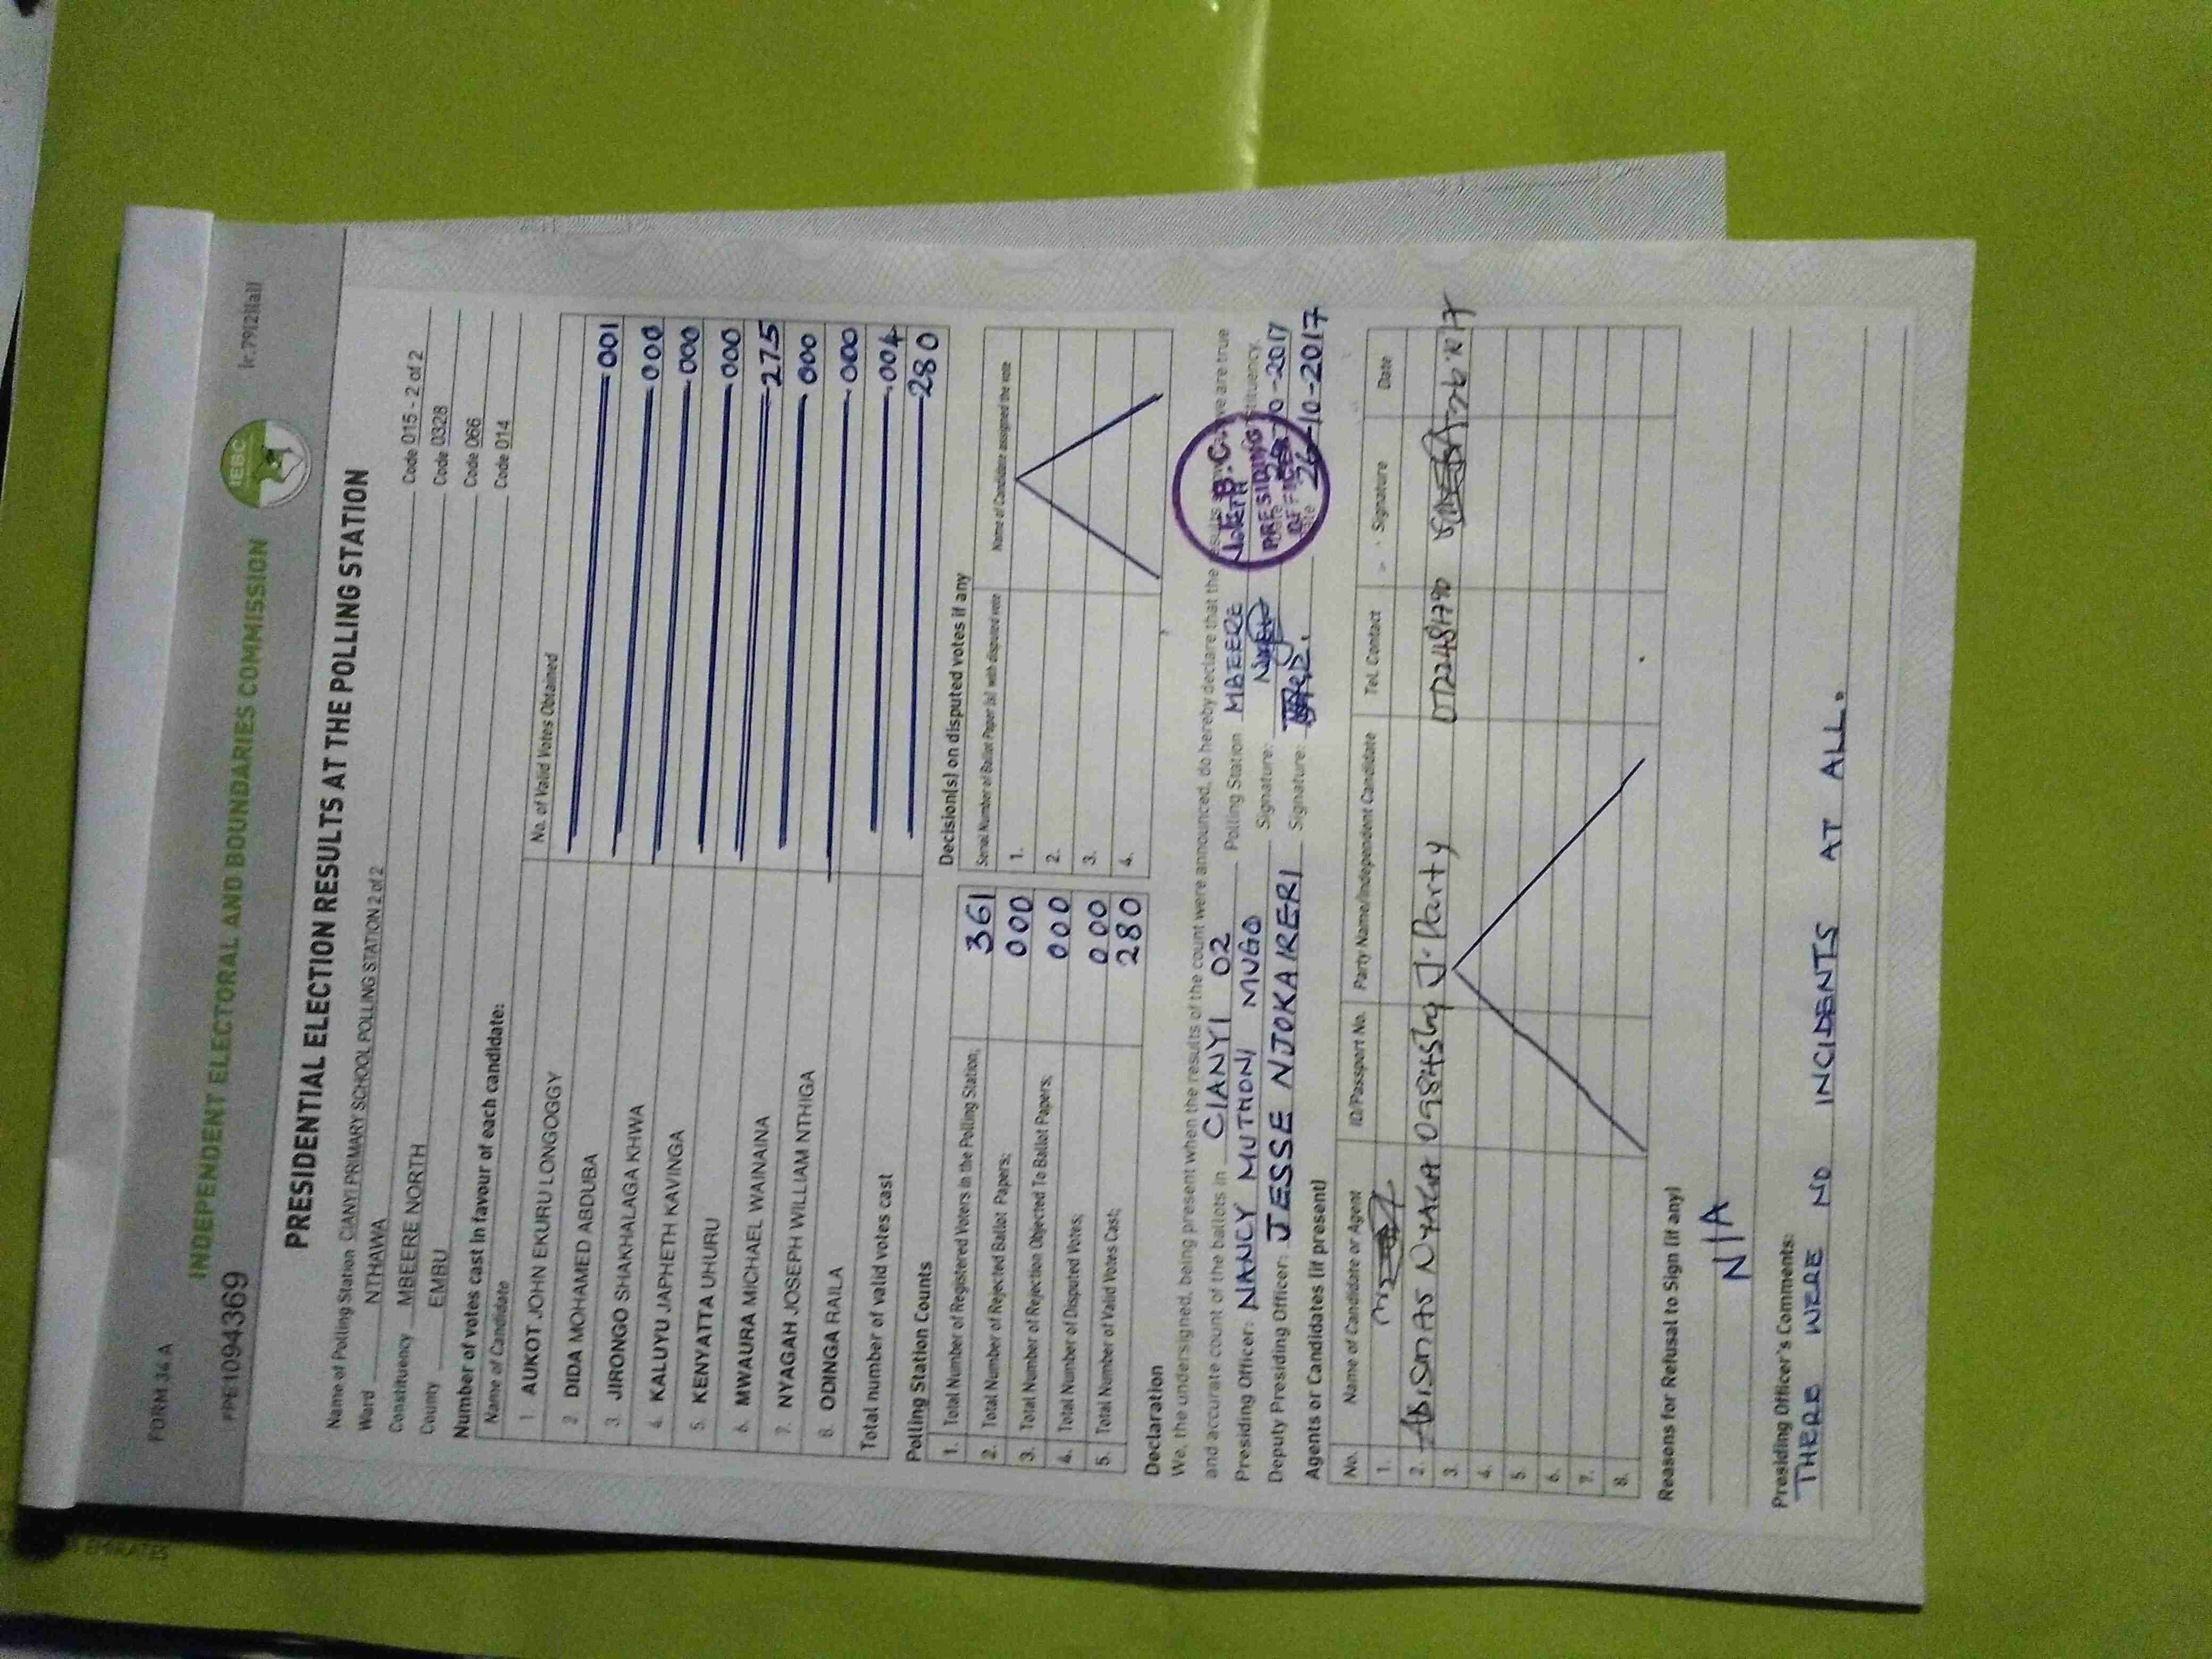 FORM 34 A
Ir.79(2)(a)]
IEBC
INDEPENDENT ELECTORAL AND BOUNDARIES COMMISSION
PPE1094369
PRESIDENTIAL ELECTION RESULTS AT THE POLLING STATION
Name of Polling Station CIANYI PRIMARY SCHOOL POLLING STATION 2 of 2 Code 015 - 2 of 2
Ward NTHAWA Code 0328
Constituency MBEERE NORTH Code 066
County EMBU Code 014
Number of votes cast in favour of each candidate:
Name of Candidate No. of Valid Votes Obtained
1. AUKOT JOHN EKURU LONGOGGY 001
2. DIDA MOHAMED ABDUBA 000
3. JIRONGO SHAKHALAGA KHWA 000
4. KALUYU JAPHETH KAVINGA 000
5. KENYATTA UHURU 275
6. MWAURA MICHAEL WAINAINA 000
7. NYAGAH JOSEPH WILLIAM NTHIGA 000
8. ODINGA RAILA 004
Total number of valid votes cast 280
Polling Station Counts
1. Total Number of Registered Voters in the Polling Station; 361
2. Total Number of Rejected Ballot Papers; 000
3. Total Number of Rejection Objected To Ballot Papers; 000
4. Total Number of Disputed Votes; 000
5. Total Number of Valid Votes Cast; 280
Decision(s) on disputed votes if any
Serial Number of Ballot Paper (s) with disputed vote Name of Candidate assigned the vote
1.
2.
3.
4.
Declaration
We, the undersigned, being present when the results of the count were announced, do hereby declare that the results above are true
and accurate count of the ballots in CIANYI 02 Polling Station MBEERE Constituency.
Presiding Officer: NANCY MUTHONI MUGO Signature:
Deputy Presiding Officer: JESSE NJOKA IRERI Signature: 26-10-2017
I.E.B.C.
PRESIDING
OFFICER
Agents or Candidates (if present)
No. Name of Candidate or Agent ID/Passport No. Party Name/Independent Candidate Tel. Contact Signature Date
1.
2. NYAGA J. Party
3.
4.
5.
6.
7.
8.
Reasons for Refusal to Sign (if any)
N/A
Presiding Officer's Comments:
THERE WERE NO INCIDENTS AT ALL.